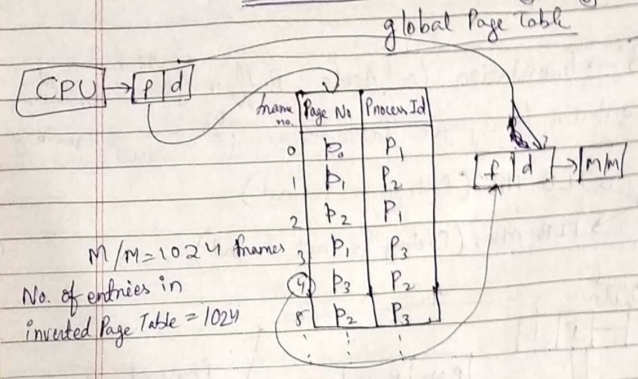 global Page Table
CPU → p d
frame no. Page No Process Id
0 P₀ P₁
1 P₁ P₂
2 P₂ P₁
3 P₁ P₃
4 P₃ P₂
8 P₂ P₃
f d → M/M
M/M=1024 frames
No. of entries in
inverted Page Table = 1024